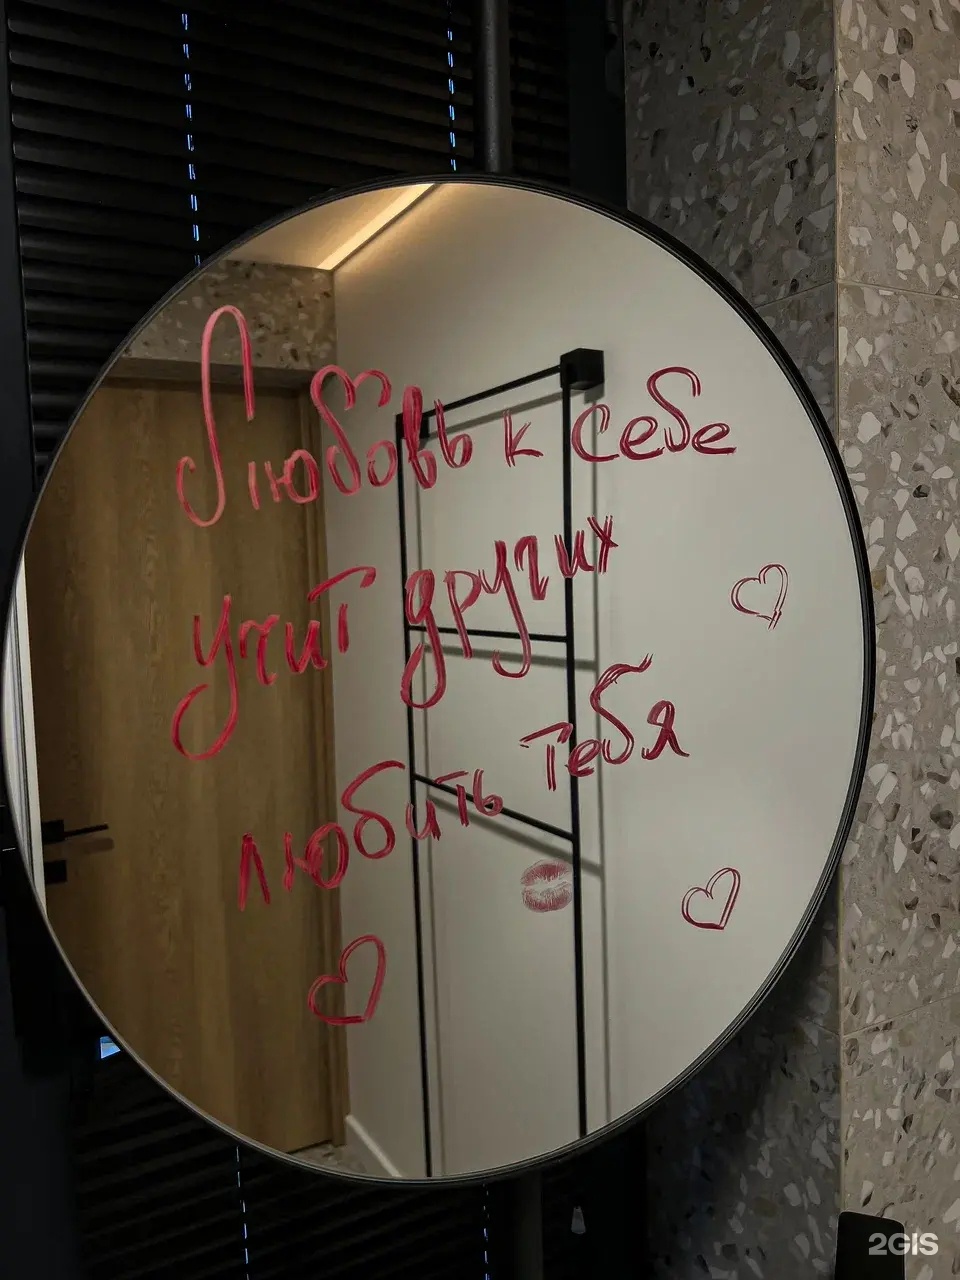 Любовь к себе
учит других
любить тебя
2GIS